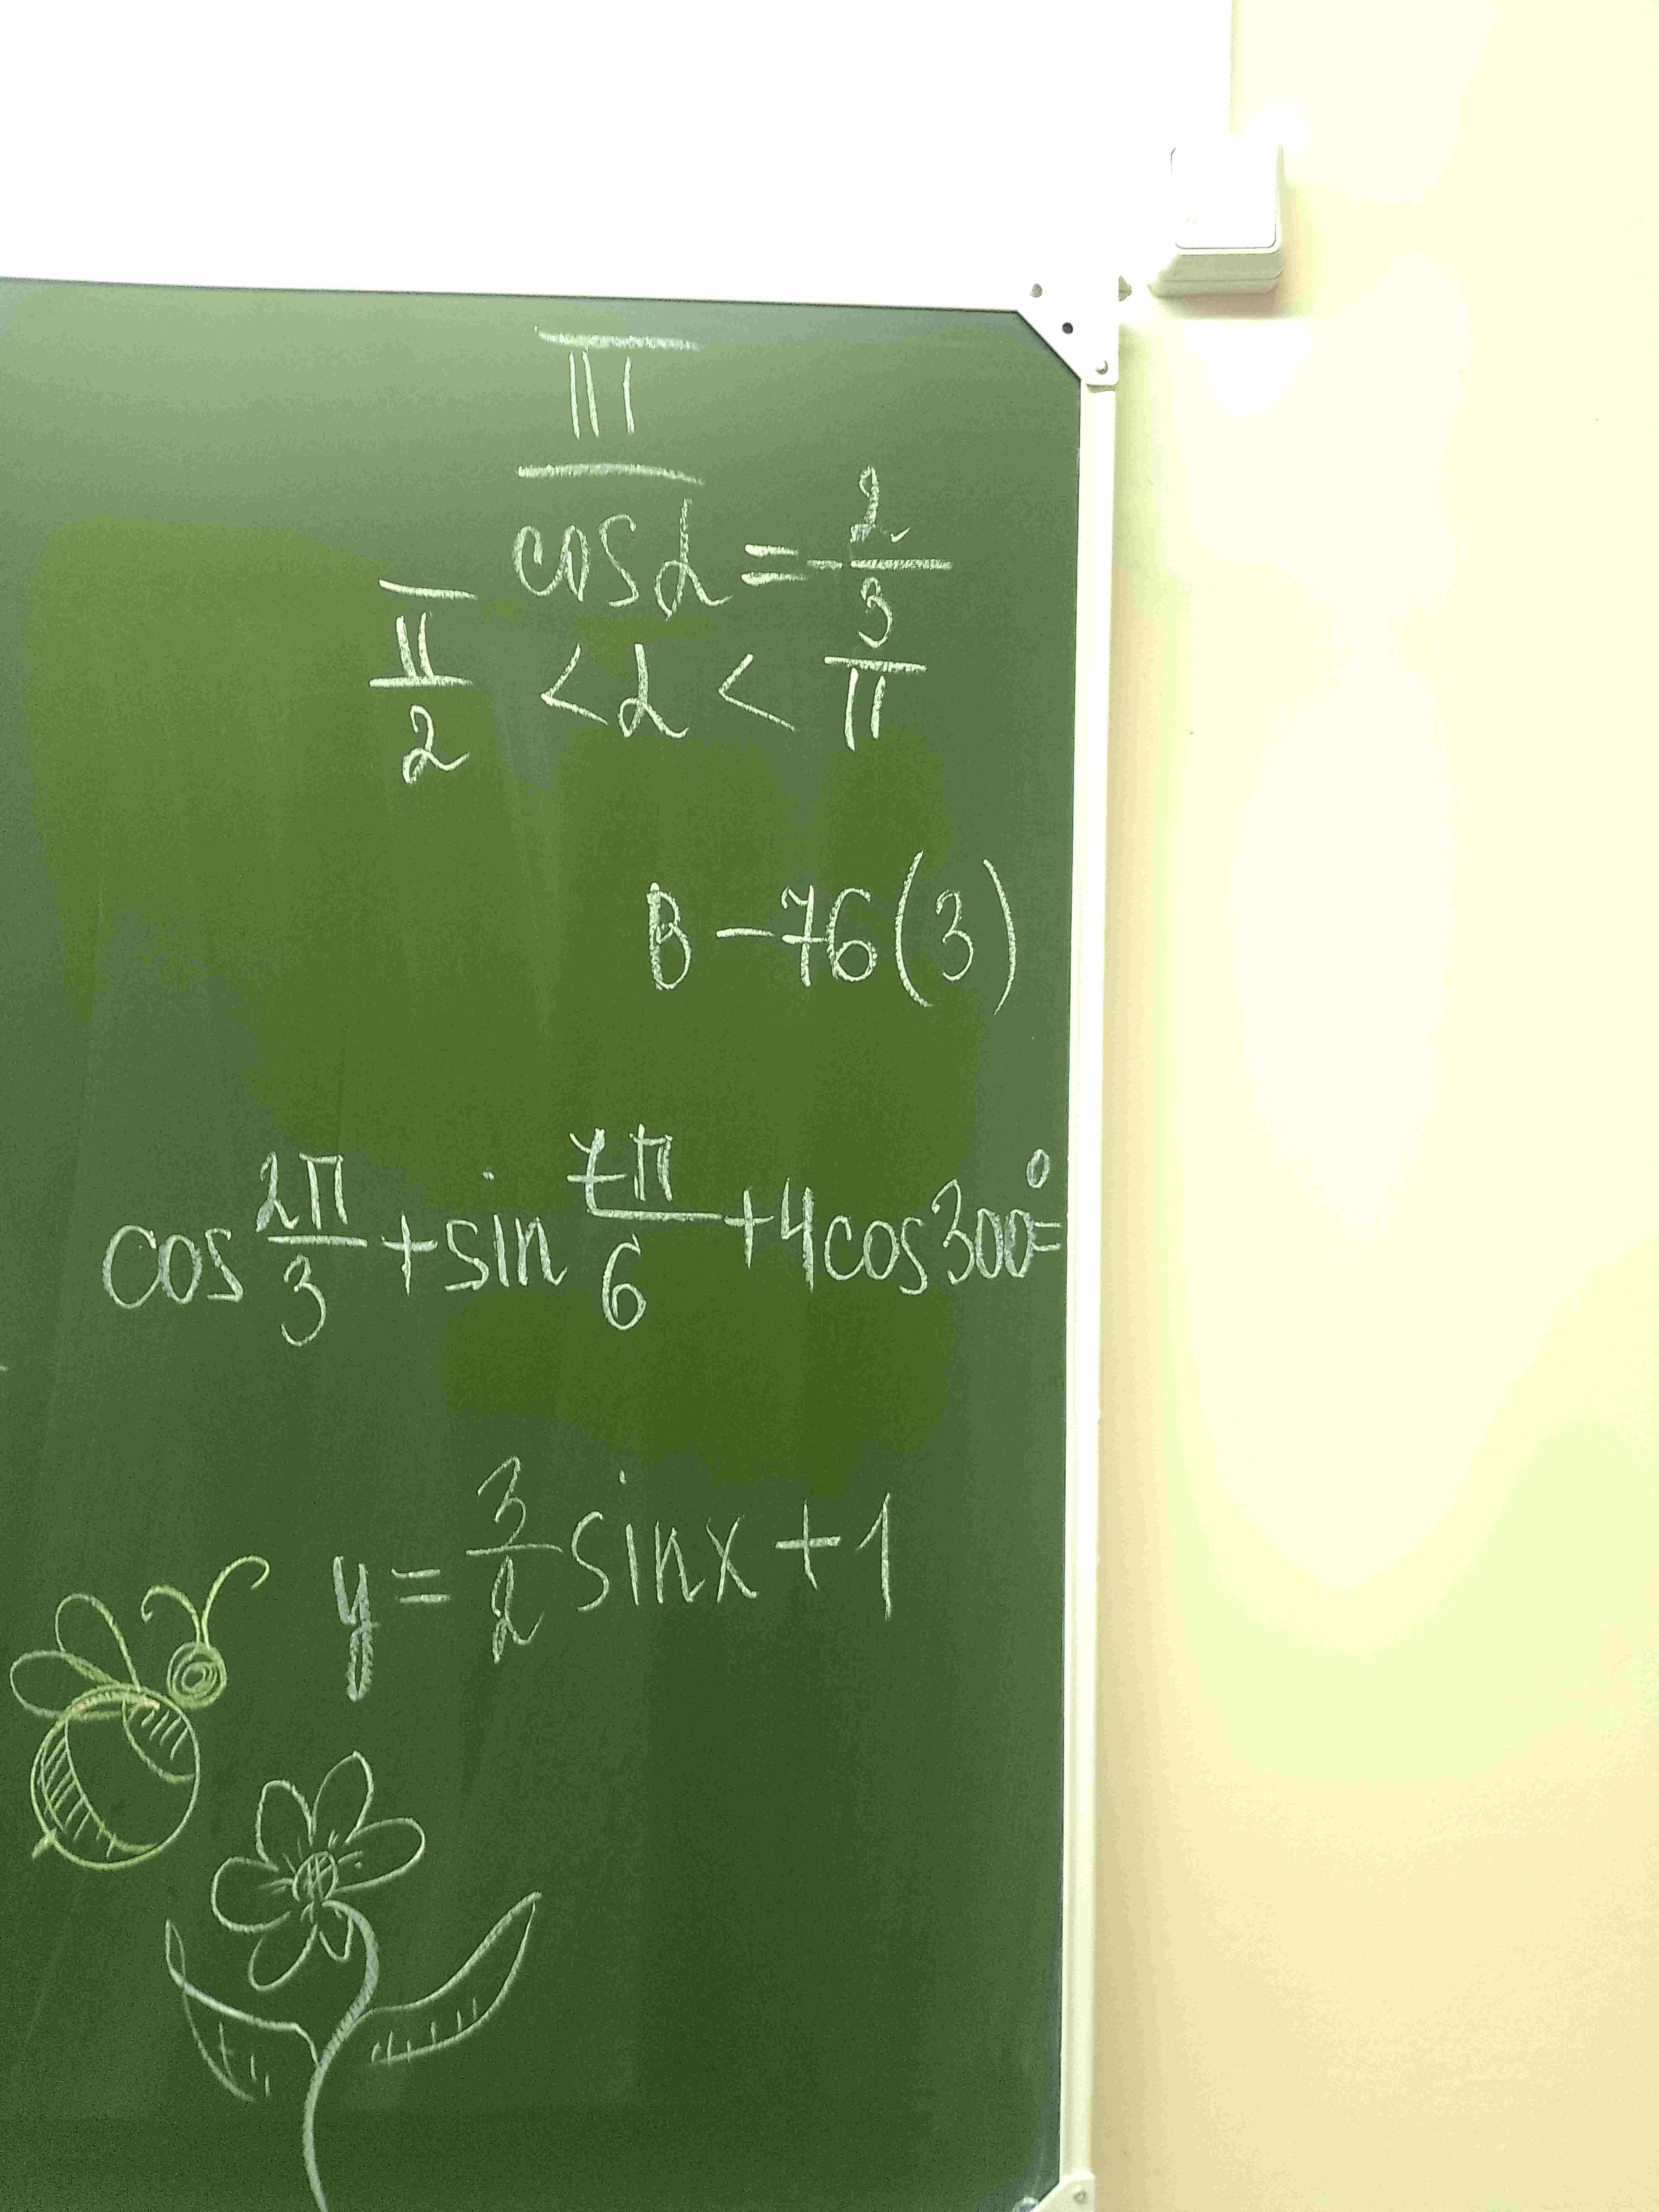 II
cos α = -2/3
π/2 < α < π
B - 76 (3)
cos 2π/3 + sin 7π/6 + 4cos300° =
y = 3/2 sinx + 1